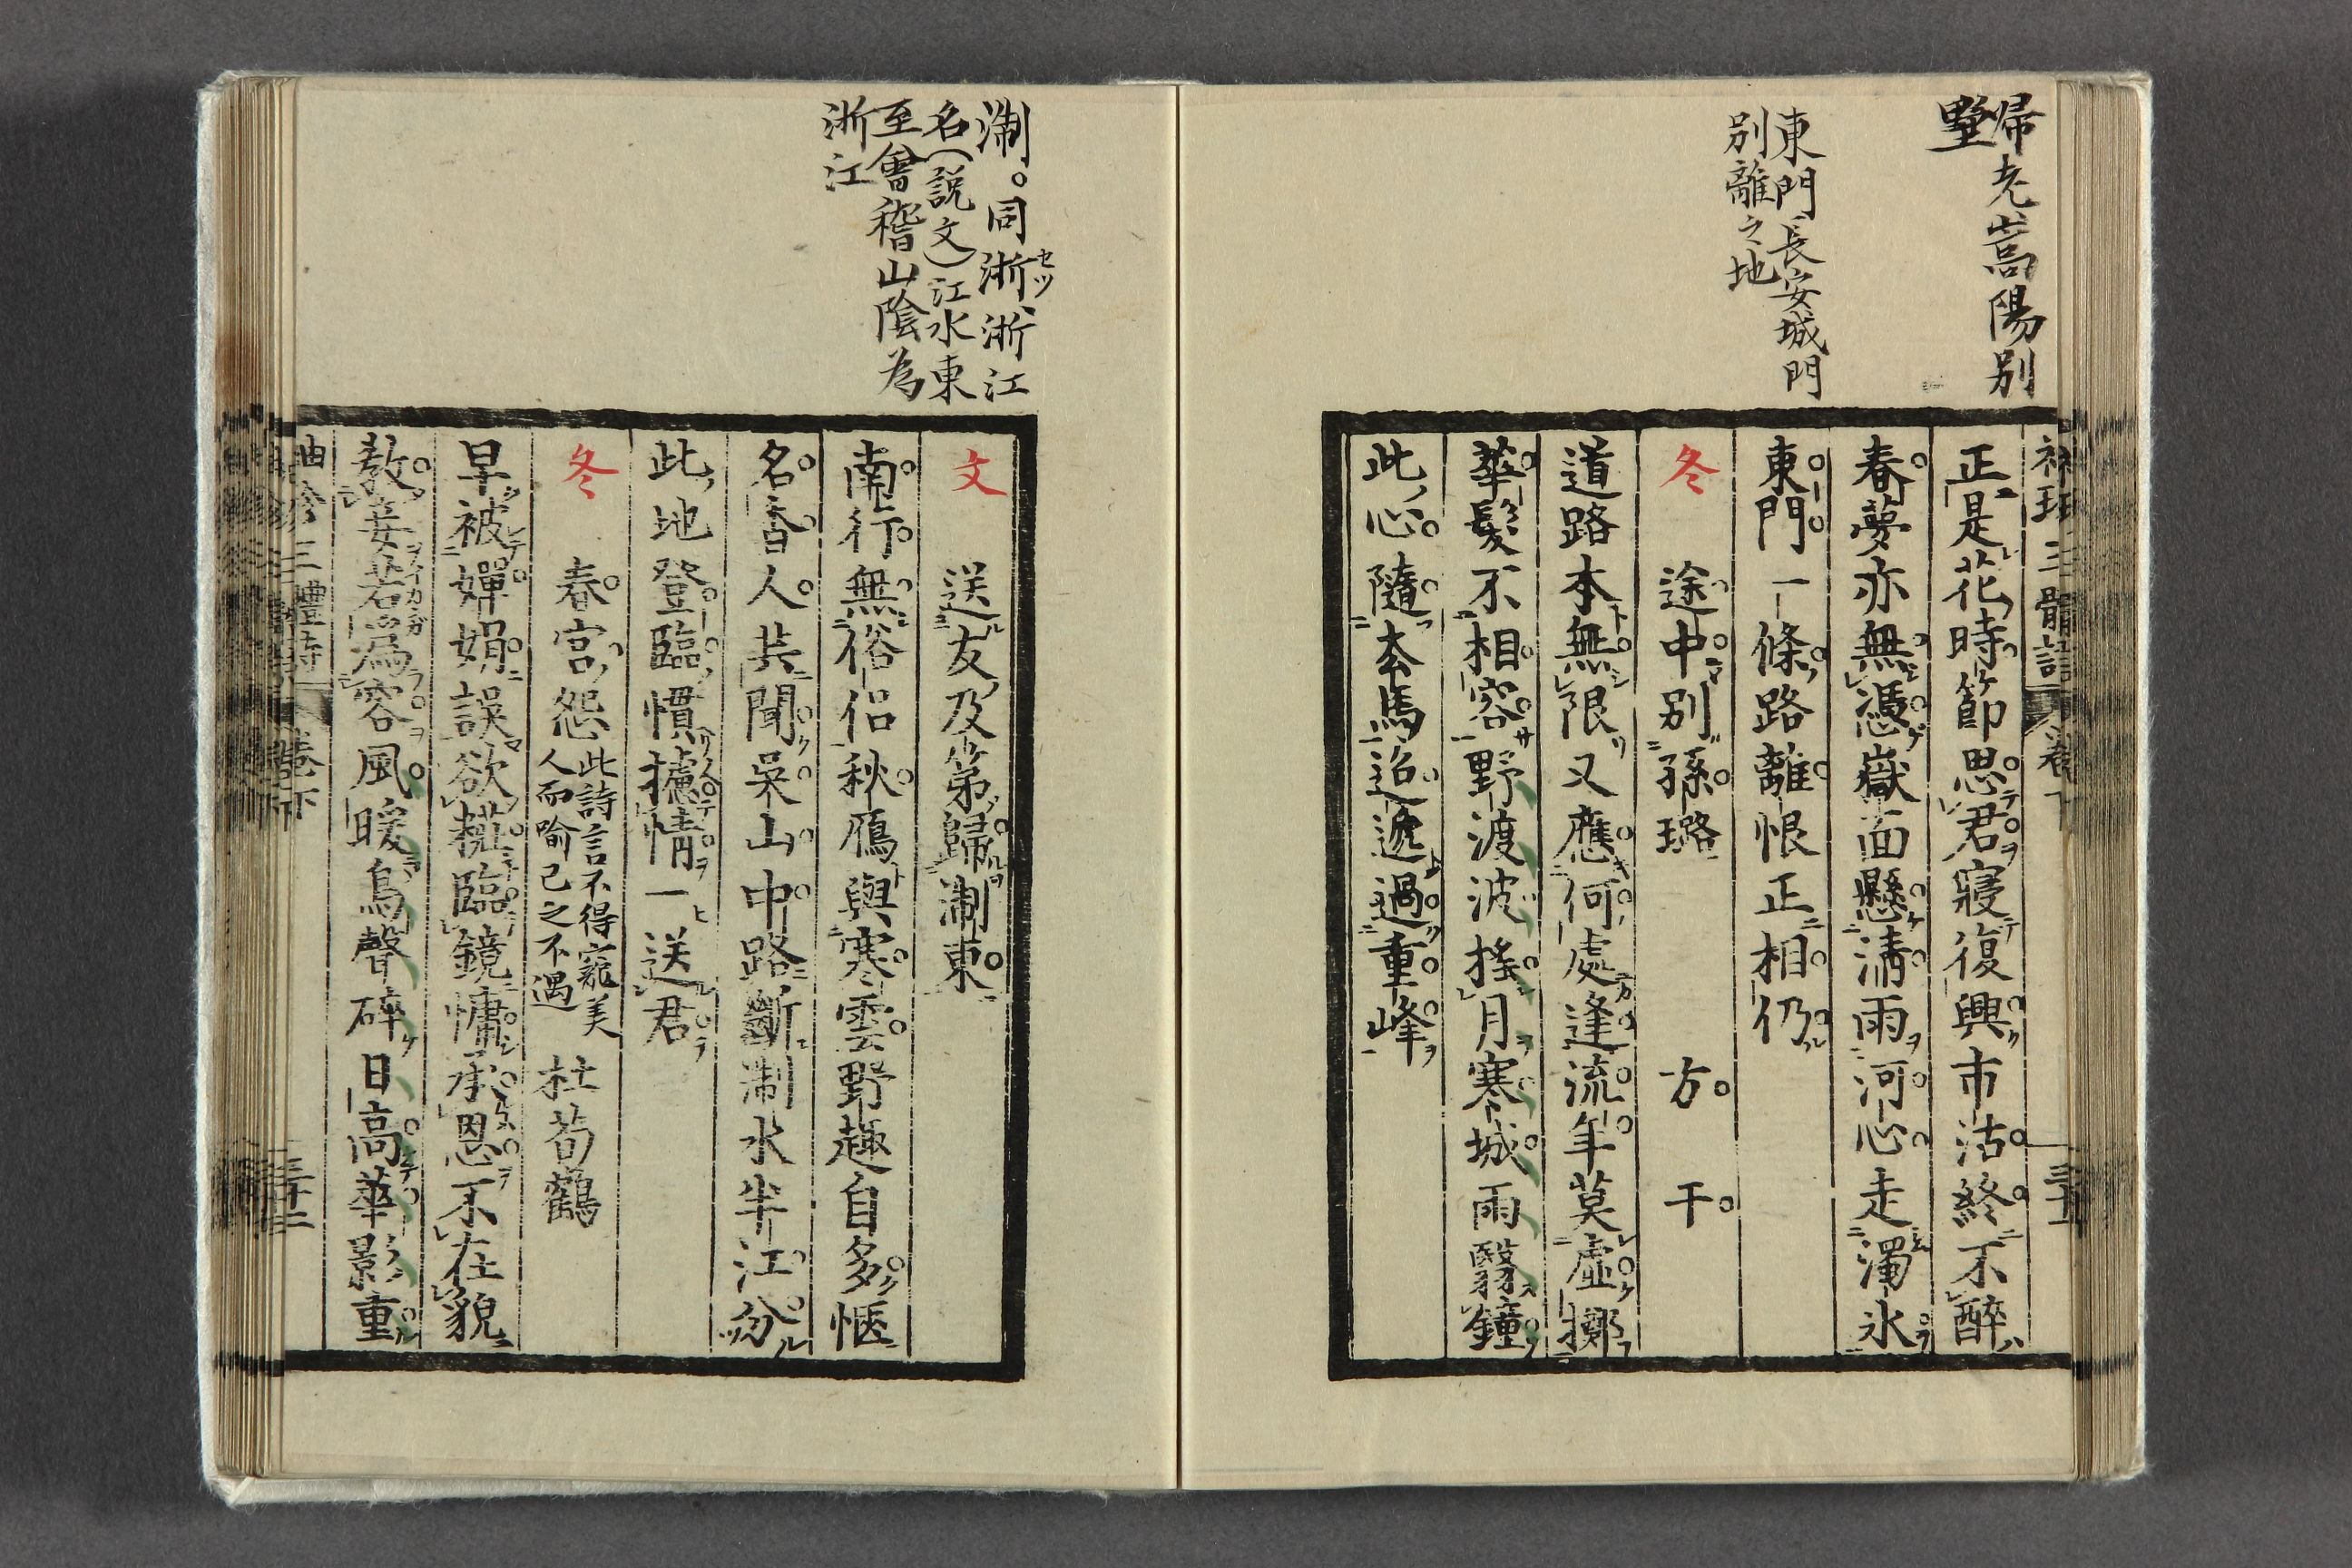 帰先嵩陽別
墅
東門長安城門
別離之地
正是花時節思君寢復興市沽終不醉
春夢亦無憑嶽面懸清雨河心走濁氷
東門一條路離恨正相仍
冬
途中別孫璐 方干
道路本無限又應何處逢流年莫虛擲
華髮不相容野渡波搖月寒城雨翳鐘
此心隨去馬迢遞過重峰
淛。同浙セツ、浙江
名(説文)江水東
至會稽山陰為
浙江
文
送友及第歸淛東
南行無俗侶秋鴈與寒雲野趣自多愜
名香人共聞吳山中路斷淛水半江分
此地登臨慣攄情一送君
冬
春宮怨 此詩言不得寵美
人而喻己之不遇 杜荀鶴
早被嬋娟誤欲粧臨鏡慵承恩不在貌
敎妾若爲容風暖鳥聲碎日高華影重
三體詩 卷下 三十二